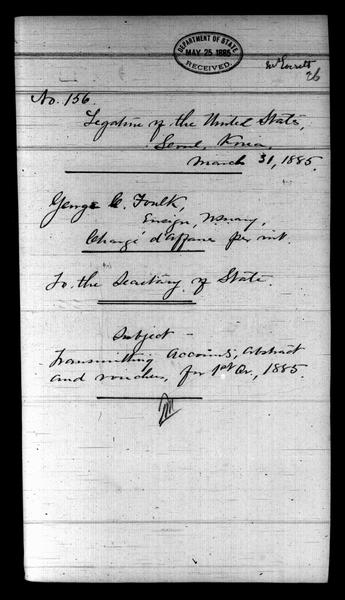 DEPARTMENT OF STATE
MAY 25 1885
RECEIVED.
Mr Everett
26
No. 156.
Legation of the United States,
Seoul, Korea,
March 31, 1885.
George C. Foulk,
Ensign, U.S. Navy,
Chargé d'affaires per int.
To the Secretary of State.
Subject -
Transmitting accounts, abstract
and vouchers, for 1st Qr, 1885.